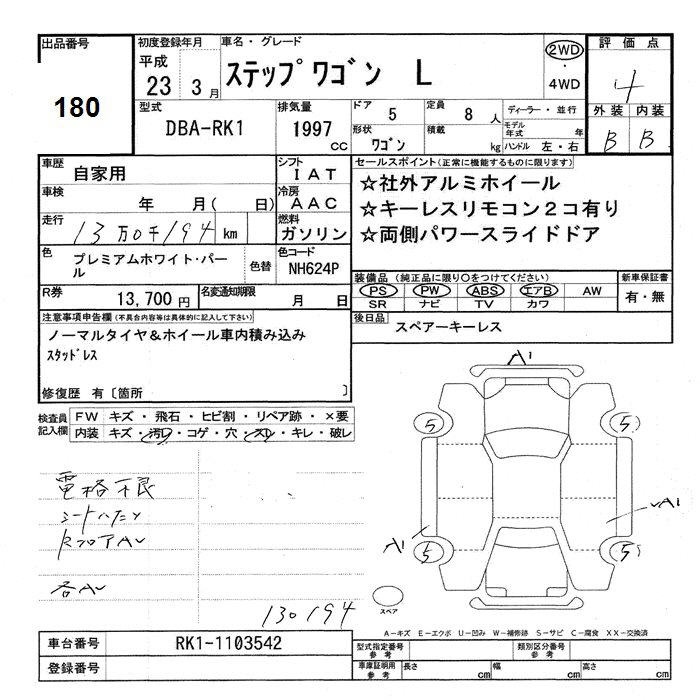 出品番号
180
初度登録年月
平成
23 3月
車名・グレード
ステップワゴン L
2WD
・
4WD
評価点
4
外装 内装
B B
型式
DBA-RK1
排気量
1997
cc
ドア 5
定員 8 人
形状 ワゴン
積載 kg
ディーラー・並行
モデル年式 年
ハンドル 左・右
車歴
自家用
シフト
IAT
セールスポイント(正常に機能するものに限ります)
☆社外アルミホイール
☆キーレスリモコン2コ有り
☆両側パワースライドドア
車検
年 月( 日)
冷房
AAC
走行
13万0千194 km
燃料
ガソリン
色
プレミアムホワイト・パール
色替
色コード
NH624P
装備品(純正品に限り○をつけてください)
PS PW ABS エアB AW
SR ナビ TV カワ
新車保証書
有・無
R券
13,700円
名変通知期限
月 日
後日品
スペアーキーレス
注意事項申告欄(不具合内容等は具体的に記入して下さい)
ノーマルタイヤ&ホイール車内積み込み
スタッドレス
修復歴 有〔箇所 〕
検査員
記入欄
FW キズ・飛石・ヒビ割・リペア跡・×要
内装 キズ・汚レ・コゲ・穴・スレ・キレ・破レ
電格不良
130194
A1
5 5
A1
A1
5 5
スペア
A-キズ E-エクボ U-凹み W-補修跡 S-サビ C-腐食 XX-交換済
車台番号
RK1-1103542
登録番号
型式指定番号
参考
類別区分番号
参考
車庫証明用
参考
長さ cm
幅 cm
高さ cm